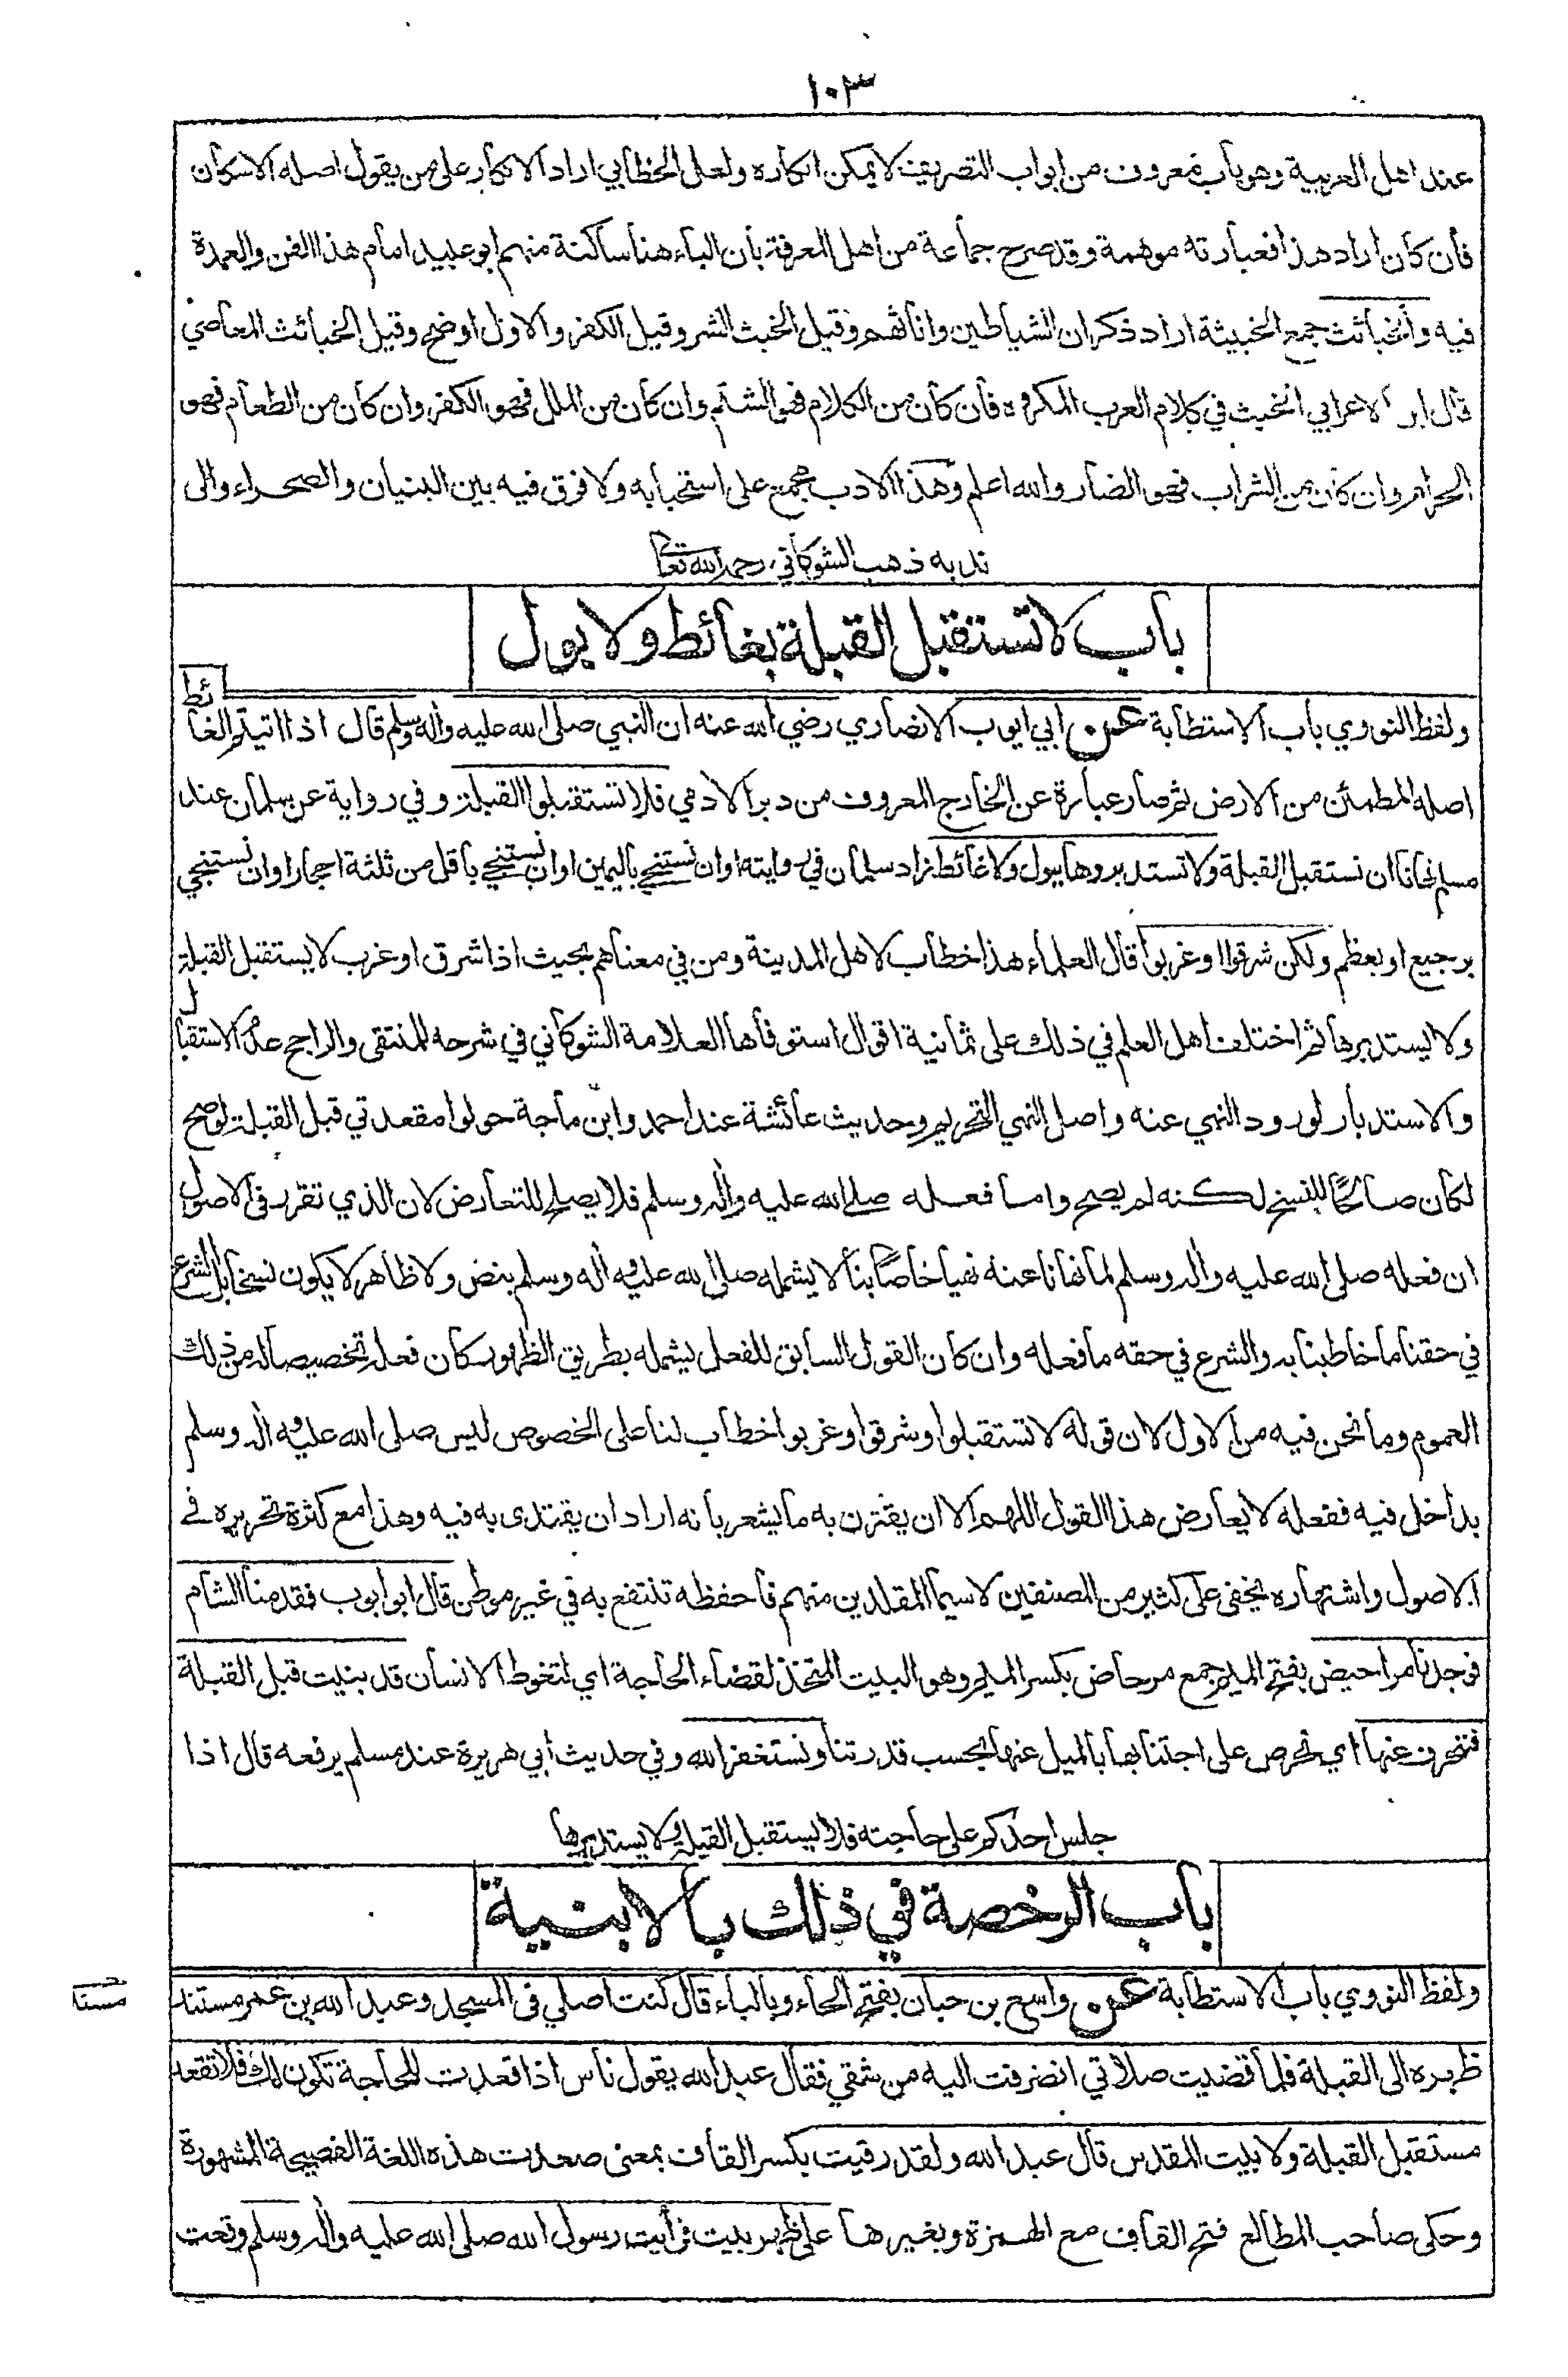 ١٠٣
عند اهل العربية وهو باب معروف من ابواب التصريف لا يمكن انكاره ولعل الخطابي اراد الانكار على من يقول اصله الاسكان
فان كان اراد هذا فعبارته موهمة وقد صرح جماعة من اهل المعرفة بان الباء هنا ساكنة منهم ابو عبيد امام هذا الفن والعمدة
فيه والخبائث جمع الخبيثة اراد ذكران الشياطين واناثهم وقيل الخبث الشر وقيل الكفر والاول اوضح وقيل الخبائث المعاصي
قال ابن الاعرابي الخبث في كلام العرب المكروه فان كان من الكلام فهو الشتم وان كان من الملل فهو الكفر وان كان من الطعام فهو
الحرام وان كان من الشراب فهو الضار والله اعلم وهذا الادب مجمع على استحبابه ولا فرق فيه بين البنيان والصحراء والى
ندبه ذهب الشوكاني رحمه الله تعالى
باب لا تستقبل القبلة بغائط ولا بول
ولفظ النووي باب الاستطابة عن ابي ايوب الانصاري رضي الله عنه ان النبي صلى الله عليه واله وسلم قال اذا اتيتم الغائط
اصله المطمئن من الارض ثم صار عبارة عن الخارج المعروف من دبر الادمي فلا تستقبلوا القبلة وفي رواية عن سلمان عند
مسلم نهانا ان نستقبل القبلة ولا تستدبروها ببول ولا غائط زاد سلمان في روايته او ان نستنجي باليمين او ان نستنجي باقل من ثلثة احجار او ان نستنجي
برجيع او بعظم ولكن شرقوا او غربوا قال العلماء هذا خطاب لاهل المدينة ومن في معناهم بحيث اذا شرق او غرب لا يستقبل القبلة
ولا يستدبرها ثم اختلف اهل العلم في ذلك على ثمانية اقوال استوفاها العلامة الشوكاني في شرحه للمنتقى والراجح عدم الاستقبال
والاستدبار لورود النهي عنه واصل النهي التحريم وحديث عائشة عند احمد وابن ماجة حولوا مقعدتي قبل القبلة لو صح
لكان صالحا للنسخ لكنه لم يصح واما فعله صلى الله عليه واله وسلم فلا يصلح للتعارض لان الذي تقرر في الاصول
ان فعله صلى الله عليه واله وسلم لما نهانا عنه نهيا خاصا بنا لا يشمله صلى الله عليه واله وسلم بنص ولا ظاهر لا يكون نسخا بل الشرع
في حقنا ما خاطبنا به والشرع في حقه ما فعله وان كان القول السابق للفعل يشمله بطريق الظهور كان فعله تخصيصا له من ذلك
العموم وما نحن فيه من الاول لان قوله لا تستقبلوا وشرقوا وغربوا خطاب لنا على الخصوص ليس صلى الله عليه واله وسلم
بداخل فيه ففعله لا يعارض هذا القول اللهم الا ان يقترن به ما يشعر بانه اراد ان يقتدى به فيه وهذا مع كثرة تحريره في
الاصول واشتهاره يخفى على كثير من المصنفين لا سيما المقلدين منهم فاحفظه تنتفع به في غير موطن قال ابو ايوب فقدمنا الشام
فوجدنا مراحيض بفتح الميم جمع مرحاض بكسر الميم وهو البيت المتخذ لقضاء الحاجة اي لتغوط الانسان قد بنيت قبل القبلة
فننحرف عنها اي نحرص على اجتنابها بالميل عنها بحسب قدرتنا ونستغفر الله وفي حديث ابي هريرة عند مسلم يرفعه قال اذا
جلس احدكم على حاجته فلا يستقبل القبلة ولا يستدبرها
باب الرخصة في ذلك بالابنية
ولفظ النووي باب الاستطابة عن واسع بن حبان بفتح الحاء وبالباء قال كنت اصلي في المسجد وعبد الله بن عمر مستند
ظهره الى القبلة فلما قضيت صلاتي انصرفت اليه من شقي فقال عبد الله يقول ناس اذا قعدت للحاجة تكون لك فلا تقعد
مستقبل القبلة ولا بيت المقدس قال عبد الله ولقد رقيت بكسر القاف بمعنى صعدت هذه اللغة الفصيحة المشهورة
وحكى صاحب المطالع فتح القاف مع الهمزة وبغيرها على ظهر بيت فرأيت رسول الله صلى الله عليه واله وسلم وقعت